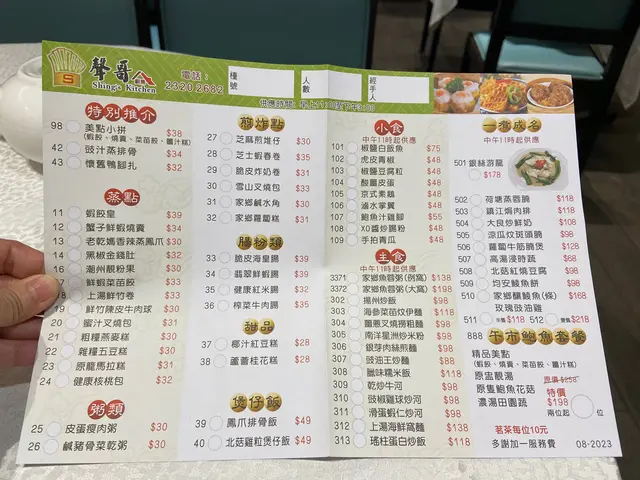 S
聲哥
Shing's Kitchen
廚房
電話：
2320 2682
檯號
人數
經手人
供應時間: 早上11:00至下午3:00
特別推介
98 美點小拼 $38
(蝦餃、燒賣、菜苗餃、薑汁糕)
42 豉汁蒸排骨 $34
43 懷舊鴨腳扎 $32
蒸點
11 蝦餃皇 $39
12 蟹子鮮蝦燒賣 $34
13 老乾媽香辣蒸鳳爪 $30
14 黑椒金錢肚 $32
16 潮州靚粉果 $30
17 鮮蝦菜苗餃 $33
18 上湯鮮竹卷 $33
19 鮮竹陳皮牛肉球 $30
20 蜜汁叉燒包 $31
21 粗糧蒸麥糕 $30
22 雜糧五豆糕 $30
23 原龍馬拉糕 $31
24 健康核桃包 $32
粥類
25 皮蛋瘦肉粥 $30
26 鹹豬骨菜乾粥 $30
煎炸點
27 芝麻煎堆仔 $30
28 芝士蝦春卷 $35
29 脆皮炸奶卷 $31
30 雪山叉燒包 $33
31 家鄉鹹水角 $30
32 家鄉蘿蔔糕 $31
腸粉類
33 脆皮海皇腸 $39
34 翡翠鮮蝦腸 $39
35 健康紅米腸 $32
36 榨菜牛肉腸 $35
甜品
37 椰汁紅豆糕 $28
38 蘆薈桂花糕 $28
煲仔飯
39 鳳爪排骨飯 $49
40 北菇雞粒煲仔飯 $49
小食
中午11時起供應
101 椒鹽白飯魚 $75
102 虎皮青椒 $48
103 椒鹽豆腐粒 $48
104 酸薑皮蛋 $48
105 京式素鵝 $48
106 滷水掌翼 $48
107 鮑魚汁雞腳 $55
108 XO醬炒腸粉 $48
109 手拍青瓜 $48
主食
中午11時起供應
3371 家鄉魚蓉粥(例窩) $138
3372 家鄉魚蓉粥(大窩) $198
302 揚州炒飯 $98
303 海參菜苗炆伊麵 $118
304 薑蔥叉燒撈粗麵 $98
305 南洋星洲炒米粉 $98
306 銀芽肉絲煎麵 $98
307 豉油王炒麵 $88
308 臘味糯米飯 $118
309 乾炒牛河 $98
310 豉椒雞球炒河 $98
311 滑蛋蝦仁炒河 $98
312 上湯海鮮窩麵 $138
313 瑤柱蛋白炒飯 $118
一番成名
中午11時起供應
501 銀絲游龍 $178
502 荷塘蒸蓉脆 $118
503 鎮江焗肉排 $118
504 大良炒鮮奶 $108
505 涼瓜炆斑頭腩 $98
506 蘿蔔牛筋腩煲 $128
507 高湯浸時蔬 $68
508 北菇紅燒豆腐 $98
509 均安鯪魚餅 $98
510 家鄉釀鯪魚(條) $168
玫瑰豉油雞
511 半隻 $118
512 一隻 $218
888 午市鮑魚套餐
精品美點
(蝦餃、燒賣、菜苗餃、薑汁糕)
原盅靚湯
原隻鮑魚花菇
濃湯田園蔬
原價 $258
特價
$198
兩位起
位
茗茶每位10元
多謝加一服務費
08-2023